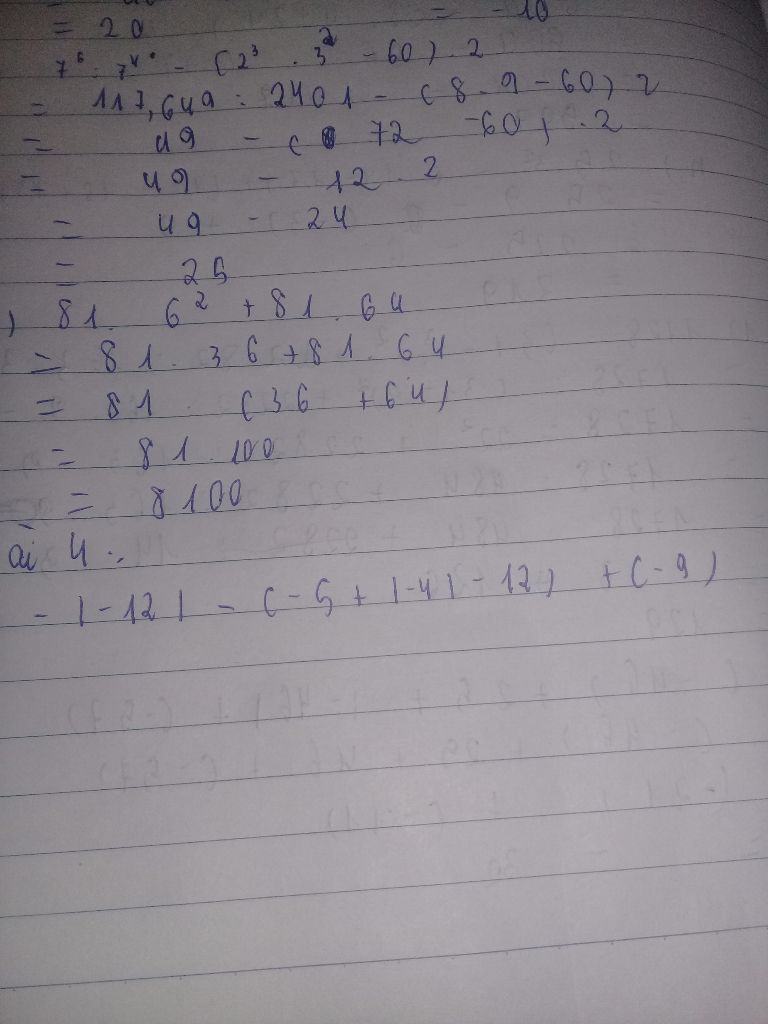 = 20 = -10
7⁶ : 7⁴ - (2³ . 3² - 60) . 2
= 117,649 : 2401 - (8 . 9 - 60) 2
= 49 - ( 72 - 60) . 2
= 49 - 12 . 2
= 49 - 24
= 25
) 81 . 6² + 81 . 64
= 81 . 36 + 81 . 64
= 81 . (36 + 64)
= 81 . 100
= 8100
ài 4 :
- |-12| - (-5 + |-4| - 12) + (-9)